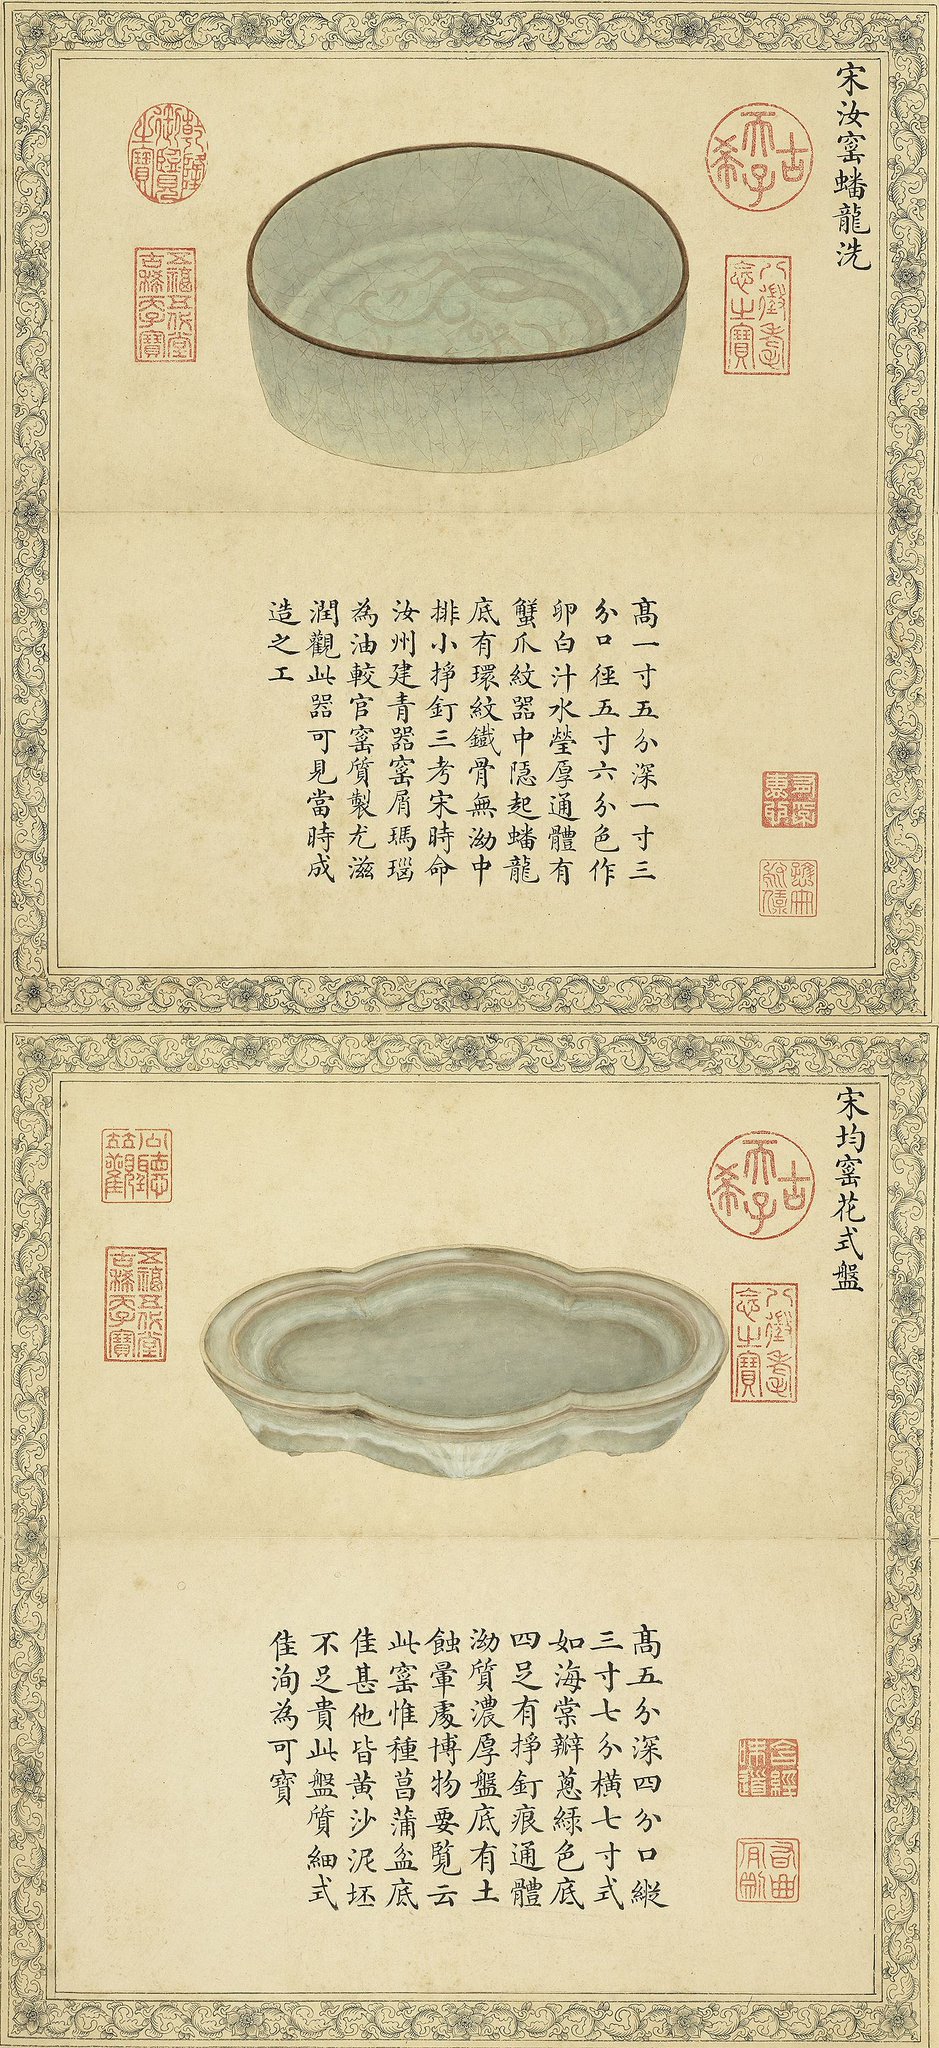 宋汝窑蟠龍洗
古希天子
八徵耄念之寶
乾隆御覽之寶
五福五代堂古稀天子寶
高一寸五分深一寸三
分口徑五寸六分色作
卵白汁水瑩厚通體有
蟹爪紋器中隱起蟠龍
底有環紋鐵骨無泑中
排小掙釘三考宋時命
汝州建青器窑屑瑪瑙
為油較官窑質製尤滋
潤觀此器可見當時成
造之工
宋均窑花式盤
古希天子
八徵耄念之寶
公聽並觀
五福五代堂古稀天子寶
高五分深四分口縱
三寸七分橫七寸式
如海棠瓣蔥緑色底
四足有掙釘痕通體
泑質濃厚盤底有土
蝕暈處博物要覽云
此窑惟種菖蒲盆底
佳甚他皆黄沙泥坯
不足貴此盤質細式
佳洵為可寶
含經味道